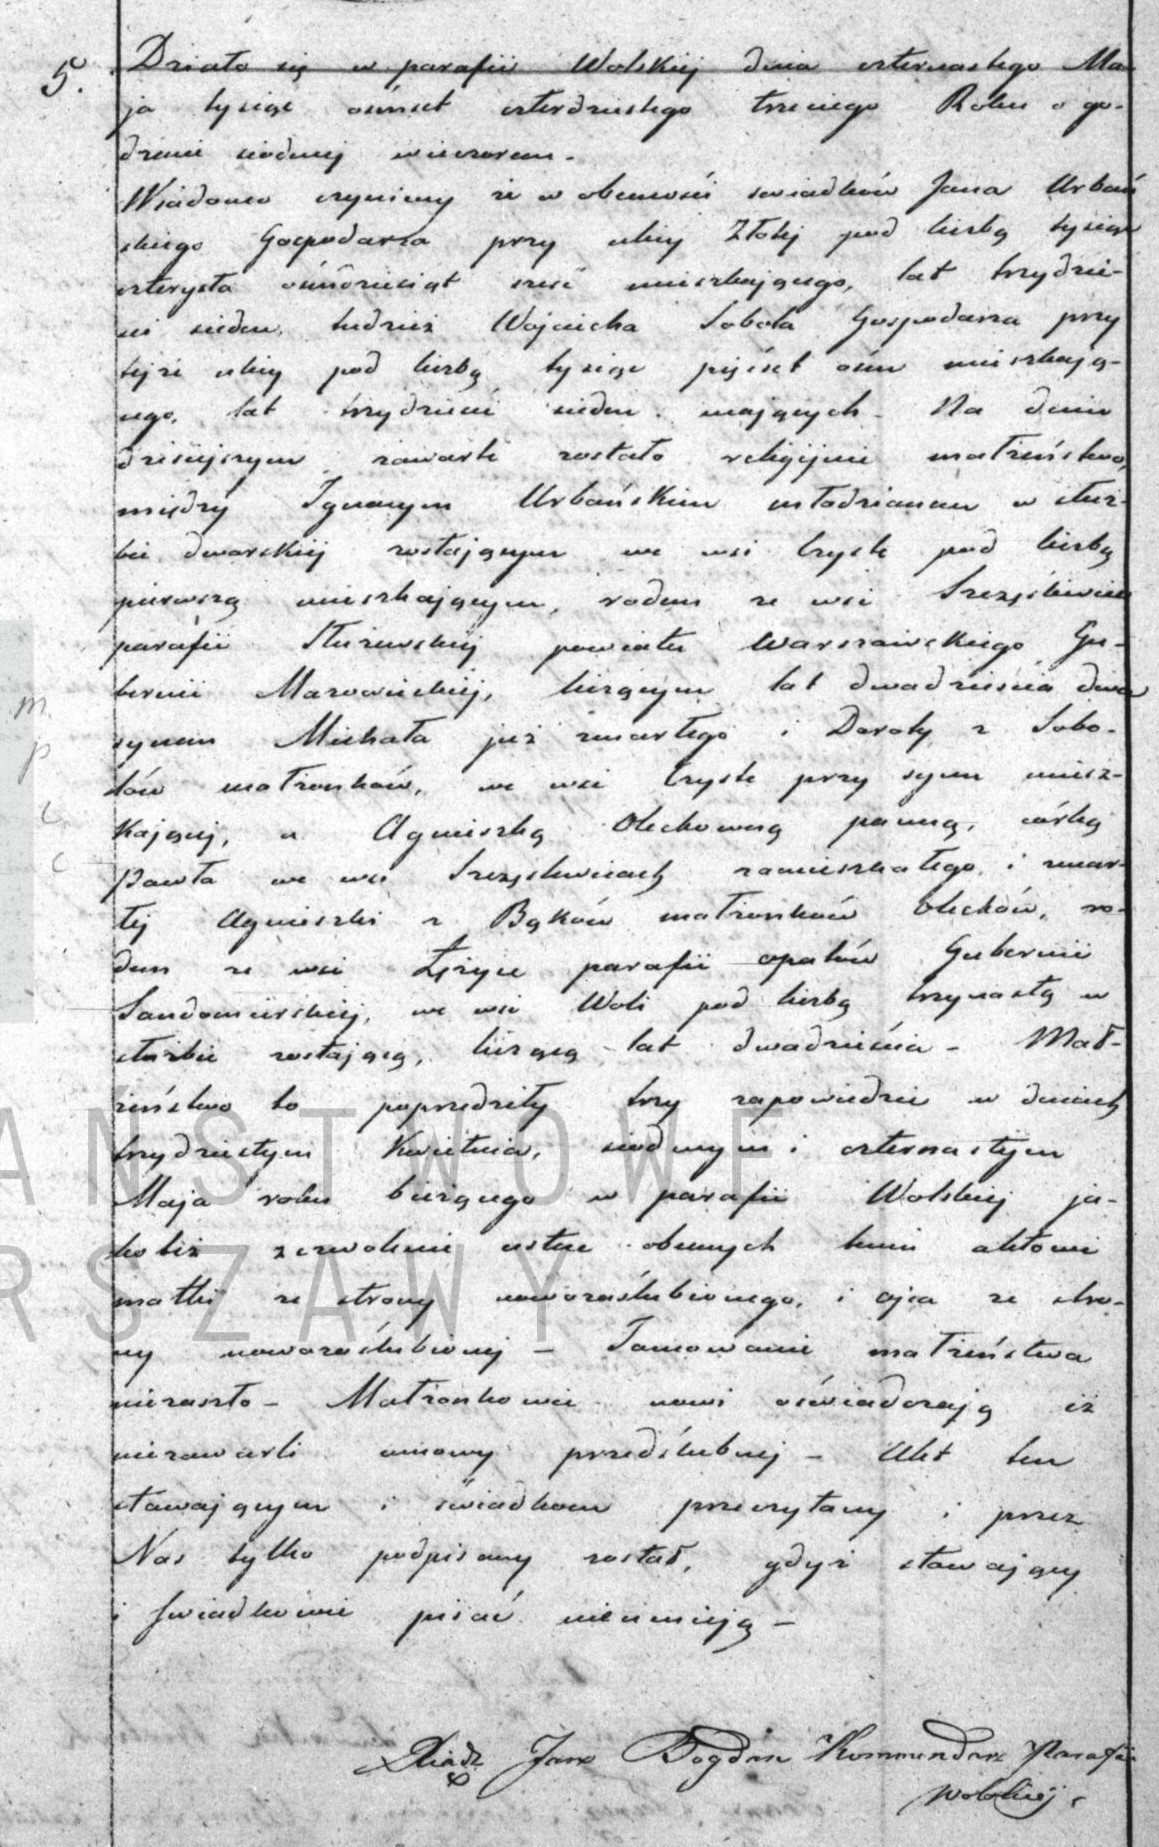 5. Działo się w parafii Wolskiej dnia czternastego Ma-
ja tysiąc ośmset czterdziestego trzeciego Roku o go-
dzinie siódmej wieczorem -
Wiadomo czynimy że w obecności świadków Jana Urbań
skiego Gospodarza przy ulicy Złotej pod liczbą tysiąc
czterysta ośmdziesiąt sześć mieszkającego, lat trzydzie-
ści siedm, tudzież Wojciecha Sobola Gospodarza przy
tejże ulicy pod liczbą tysiąc pięćset ośm mieszkają-
cego, lat trzydzieści siedm mających - Na dniu
dzisiejszym zawarte zostało religijnie małżeństwo,
między Ignacym Urbańskim młodzianem w służ-
bie dworskiej zostającym we wsi Czyste pod liczbą
pierwszą mieszkającym, rodem ze wsi Szczęśliwice
parafii Służewskiej powiatu Warszawskiego Gu-
bernii Mazowieckiej, liczącym lat dwadzieścia dwa
synem Michała już zmarłego i Doroty z Sobo-
lów małżonków, we wsi Czyste przy synu miesz-
kającej, a Agnieszką Olechowną panną, córką
Pawła we wsi Szczęśliwicach zamieszkałego i zmar-
łej Agnieszki z Bąków małżonków Olechów, ro-
dem ze wsi parafii Opatów Gubernii
Sandomierskiej, we wsi Woli pod liczbą trzynastą w
służbie zostającą, liczącą lat dwadzieścia - Mał-
żeństwo to poprzedziły trzy zapowiedzie w dniach
trzydziestym Kwietnia, siódmym i czternastym
Maja roku bieżącego w parafii Wolskiej ja-
kotiż zezwolenie ustne obecnych temu aktowi
matki ze strony nowozaślubionego, i ojca ze stro-
ny nowozaślubionej - Tamowanie małżeństwa
niezaszło - Małżonkowie nowi oświadczają iż
niezawarli umowy przedślubnej - Akt ten
stawającym i świadkom przeczytany i przez
Nas tylko podpisany został, gdyż stawający
i świadkowie pisać nieumieją -
Xiądz Jan Bogdan Kommendarz Parafii
Wolskiej.
m
p
c
c
AŃSTWOWE
RSZAWY